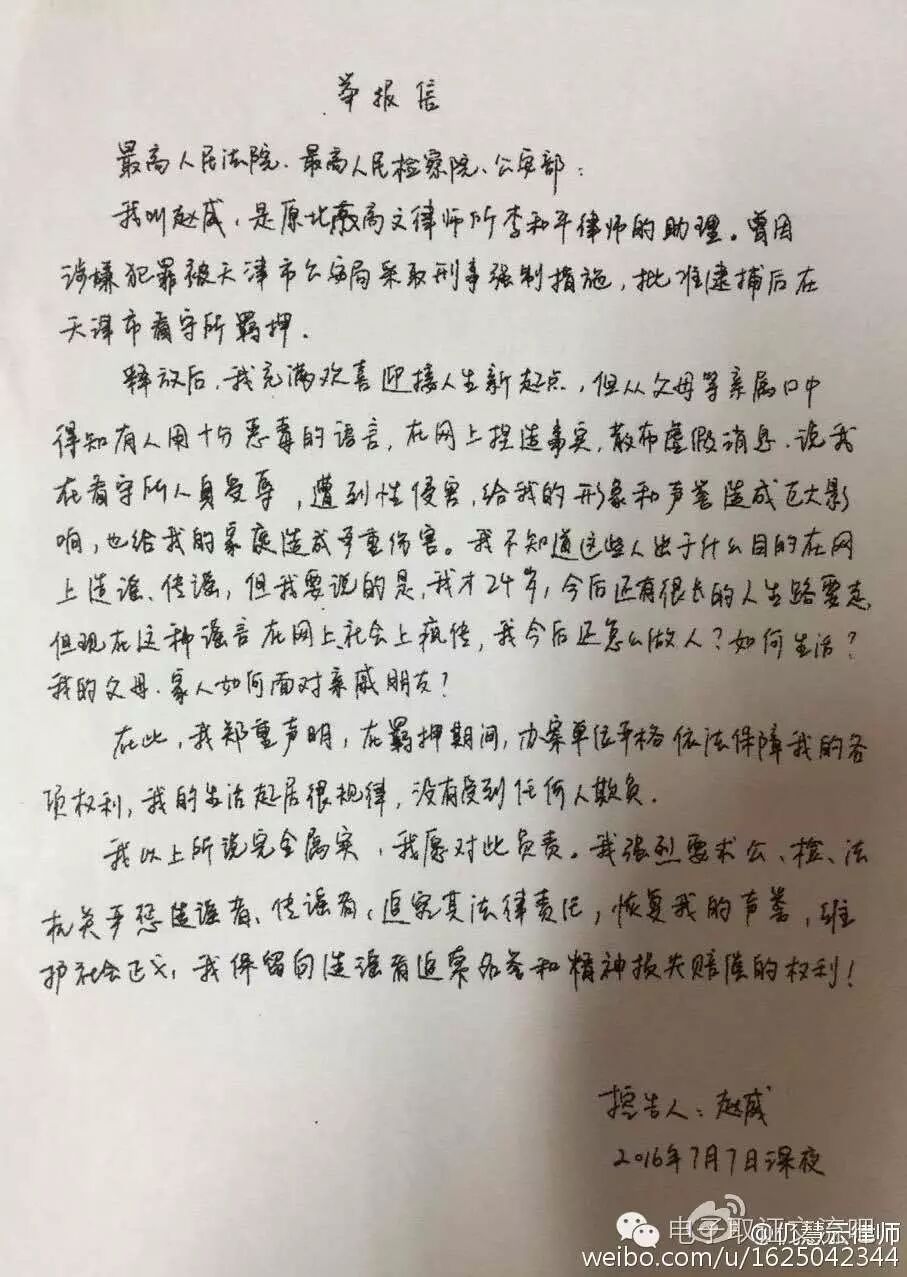 举报信
最高人民法院、最高人民检察院、公安部：
我叫赵威，是原北京高文律师所李和平律师的助理。曾因
涉嫌犯罪被天津市公安局采取刑事强制措施，批准逮捕后在
天津市看守所羁押。
释放后，我充满欢喜迎接人生新起点，但从父母等亲属口中
得知有人用十分恶毒的语言，在网上捏造事实，散布虚假消息，说我
在看守所人身受辱，遭到性侵害，给我的形象和声誉造成巨大影
响，也给我的家庭造成严重伤害。我不知道这些人出于什么目的在网
上造谣、传谣，但我要说的是，我才24岁，今后还有很长的人生路要走，
但现在这种谣言在网上、社会上疯传，我今后还怎么做人？如何生活？
我的父母、家人如何面对亲戚朋友？
在此，我郑重声明，在羁押期间，办案单位严格依法保障我的各
项权利，我的生活起居很规律，没有受到任何人欺负。
我以上所说完全属实，我愿对此负责。我强烈要求公、检、法
机关严惩造谣者、传谣者，追究其法律责任，恢复我的声誉，维
护社会正义，我保留向造谣者追索名誉和精神损失赔偿的权利！
控告人：赵威
2016年7月7日深夜
电子取证交流吧
@仉慧云律师
weibo.com/u/1625042344